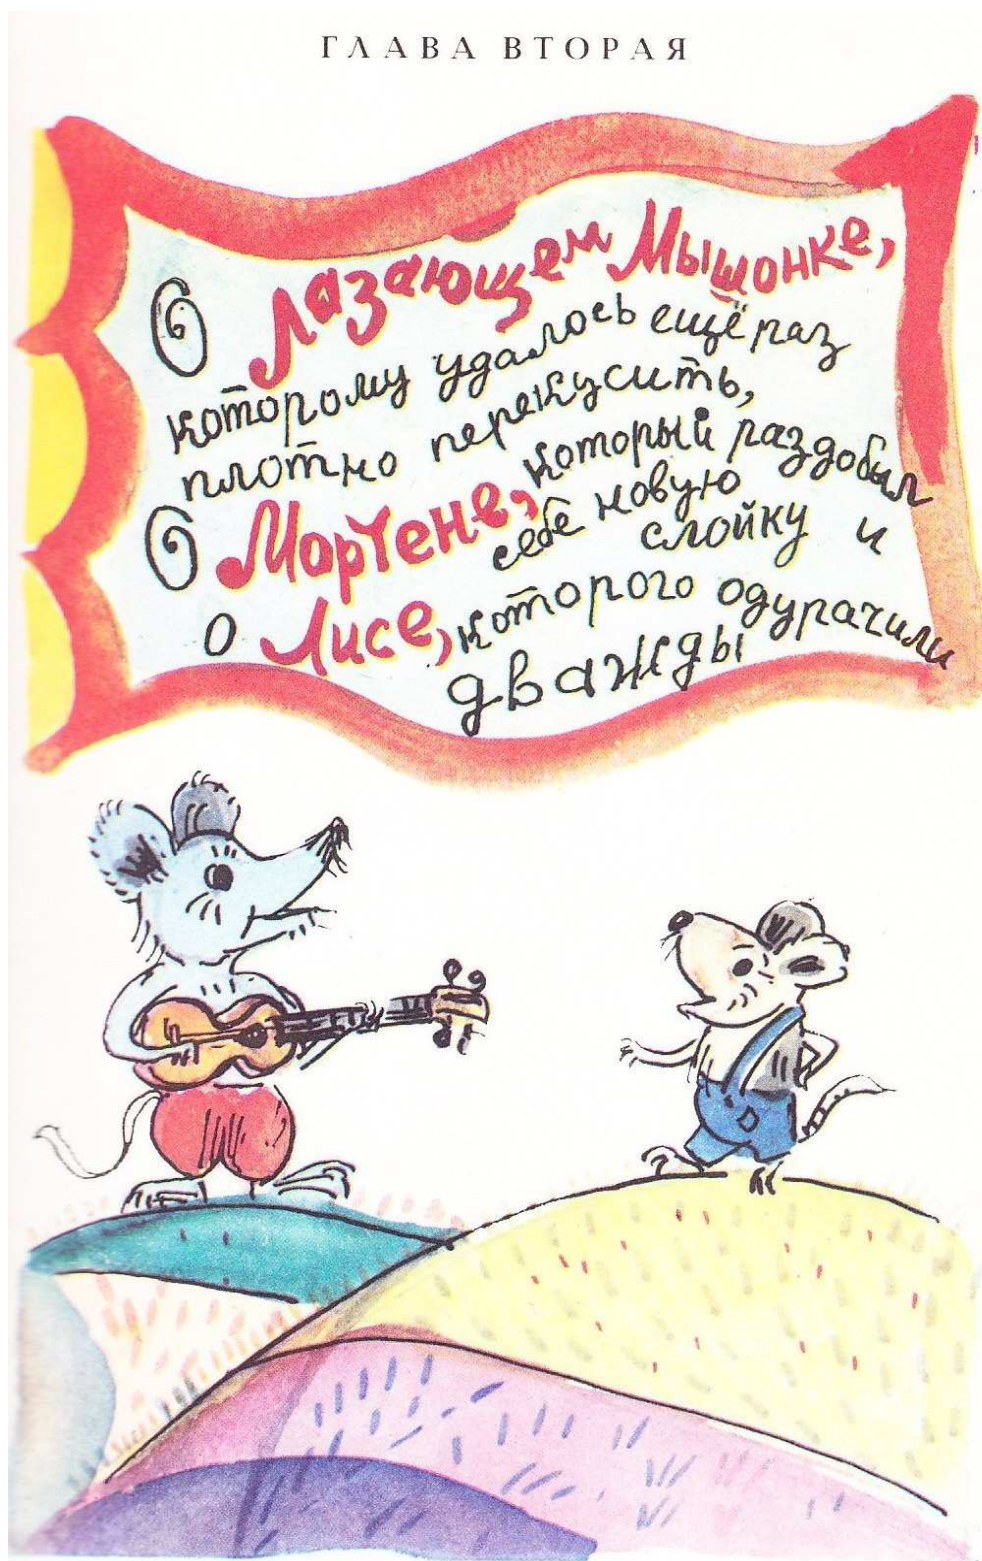 ГЛАВА ВТОРАЯ
О Лазающем Мышонке,
которому удалось ещё раз
плотно перекусить,
О Мортене, который раздобыл
себе новую
слойку и
о Лисе, которого одурачили
дважды